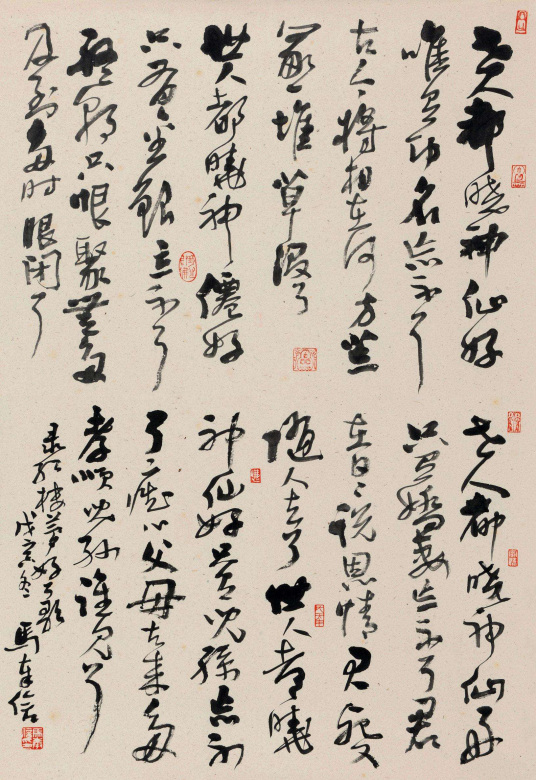 世人都晓神仙好
唯有功名忘不了
古今将相在何方荒
冢一堆草没了
世人都曉神僊好
只有金銀忘不了
终朝只恨聚無多
及到多时眼闭了
世人都晓神仙好
只有嬌妻忘不了君
在日日说恩情君死又
随人去了世人都曉
神仙好只有兒孫忘不
了癡心父母古来多
孝順兒孙谁见了
录红楼梦好了歌
戊寅冬馬奉信